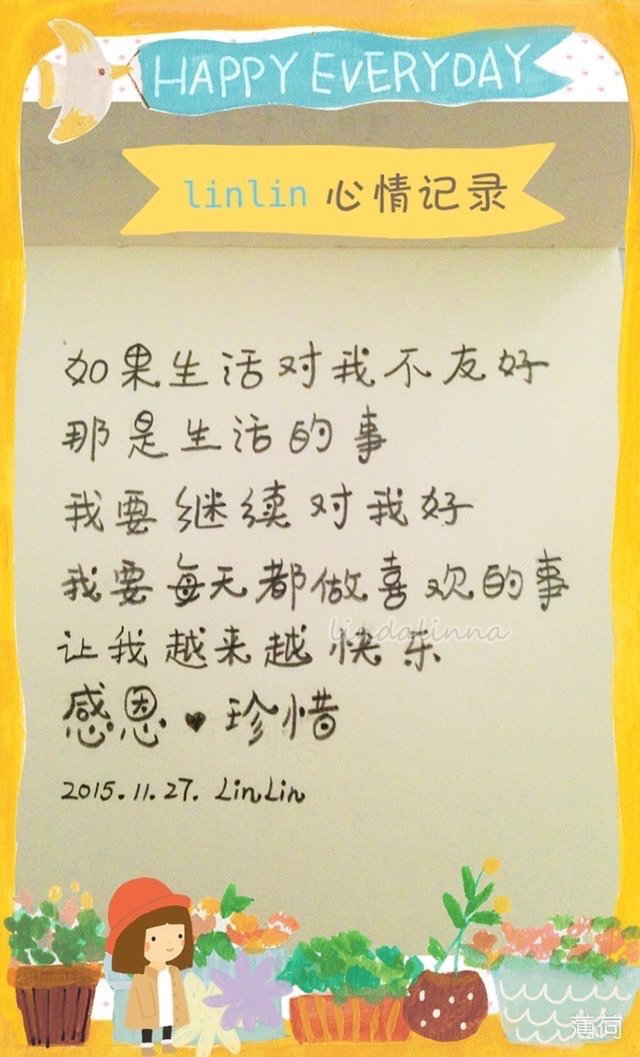 HAPPY EVERYDAY
linlin 心情记录
如果生活对我不友好
那是生活的事
我要继续对我好
我要每天都做喜欢的事
lindalinna
让我越来越快乐
感恩♥珍惜
2015.11.27. LinLin
薄荷